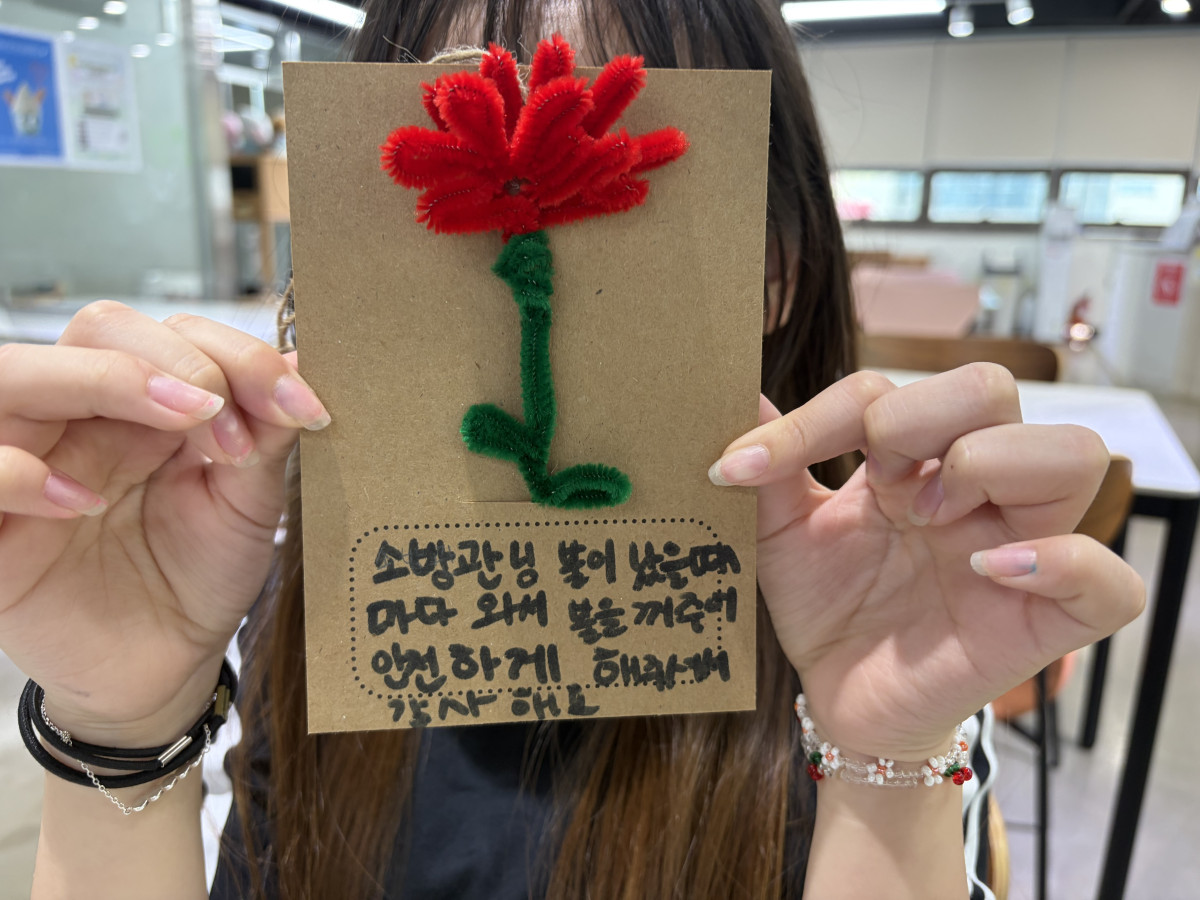 소방관님 불이 났을때
마다 와서 불을 꺼주에
안전하게 해줘서
감사해요